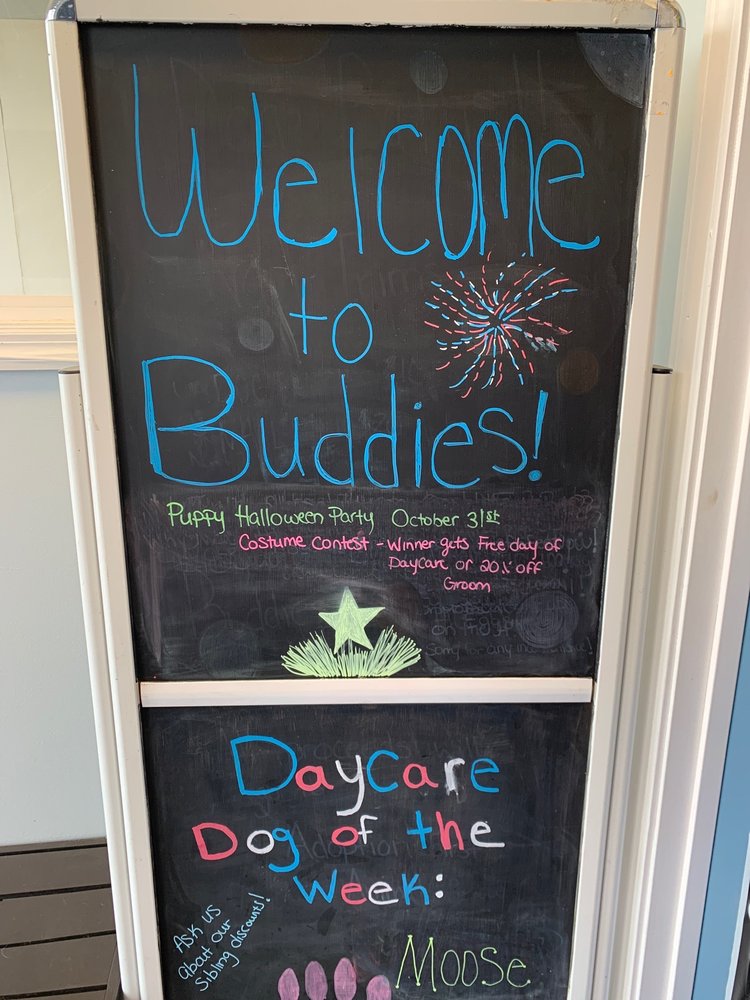 Welcome
to
Buddies!
Puppy Halloween Party October 31st
Costume Contest - Winner gets Free day of
Daycare or 20% off
Groom
Daycare
Dog of the
Week:
Ask us
about our
Sibling discounts!
Moose